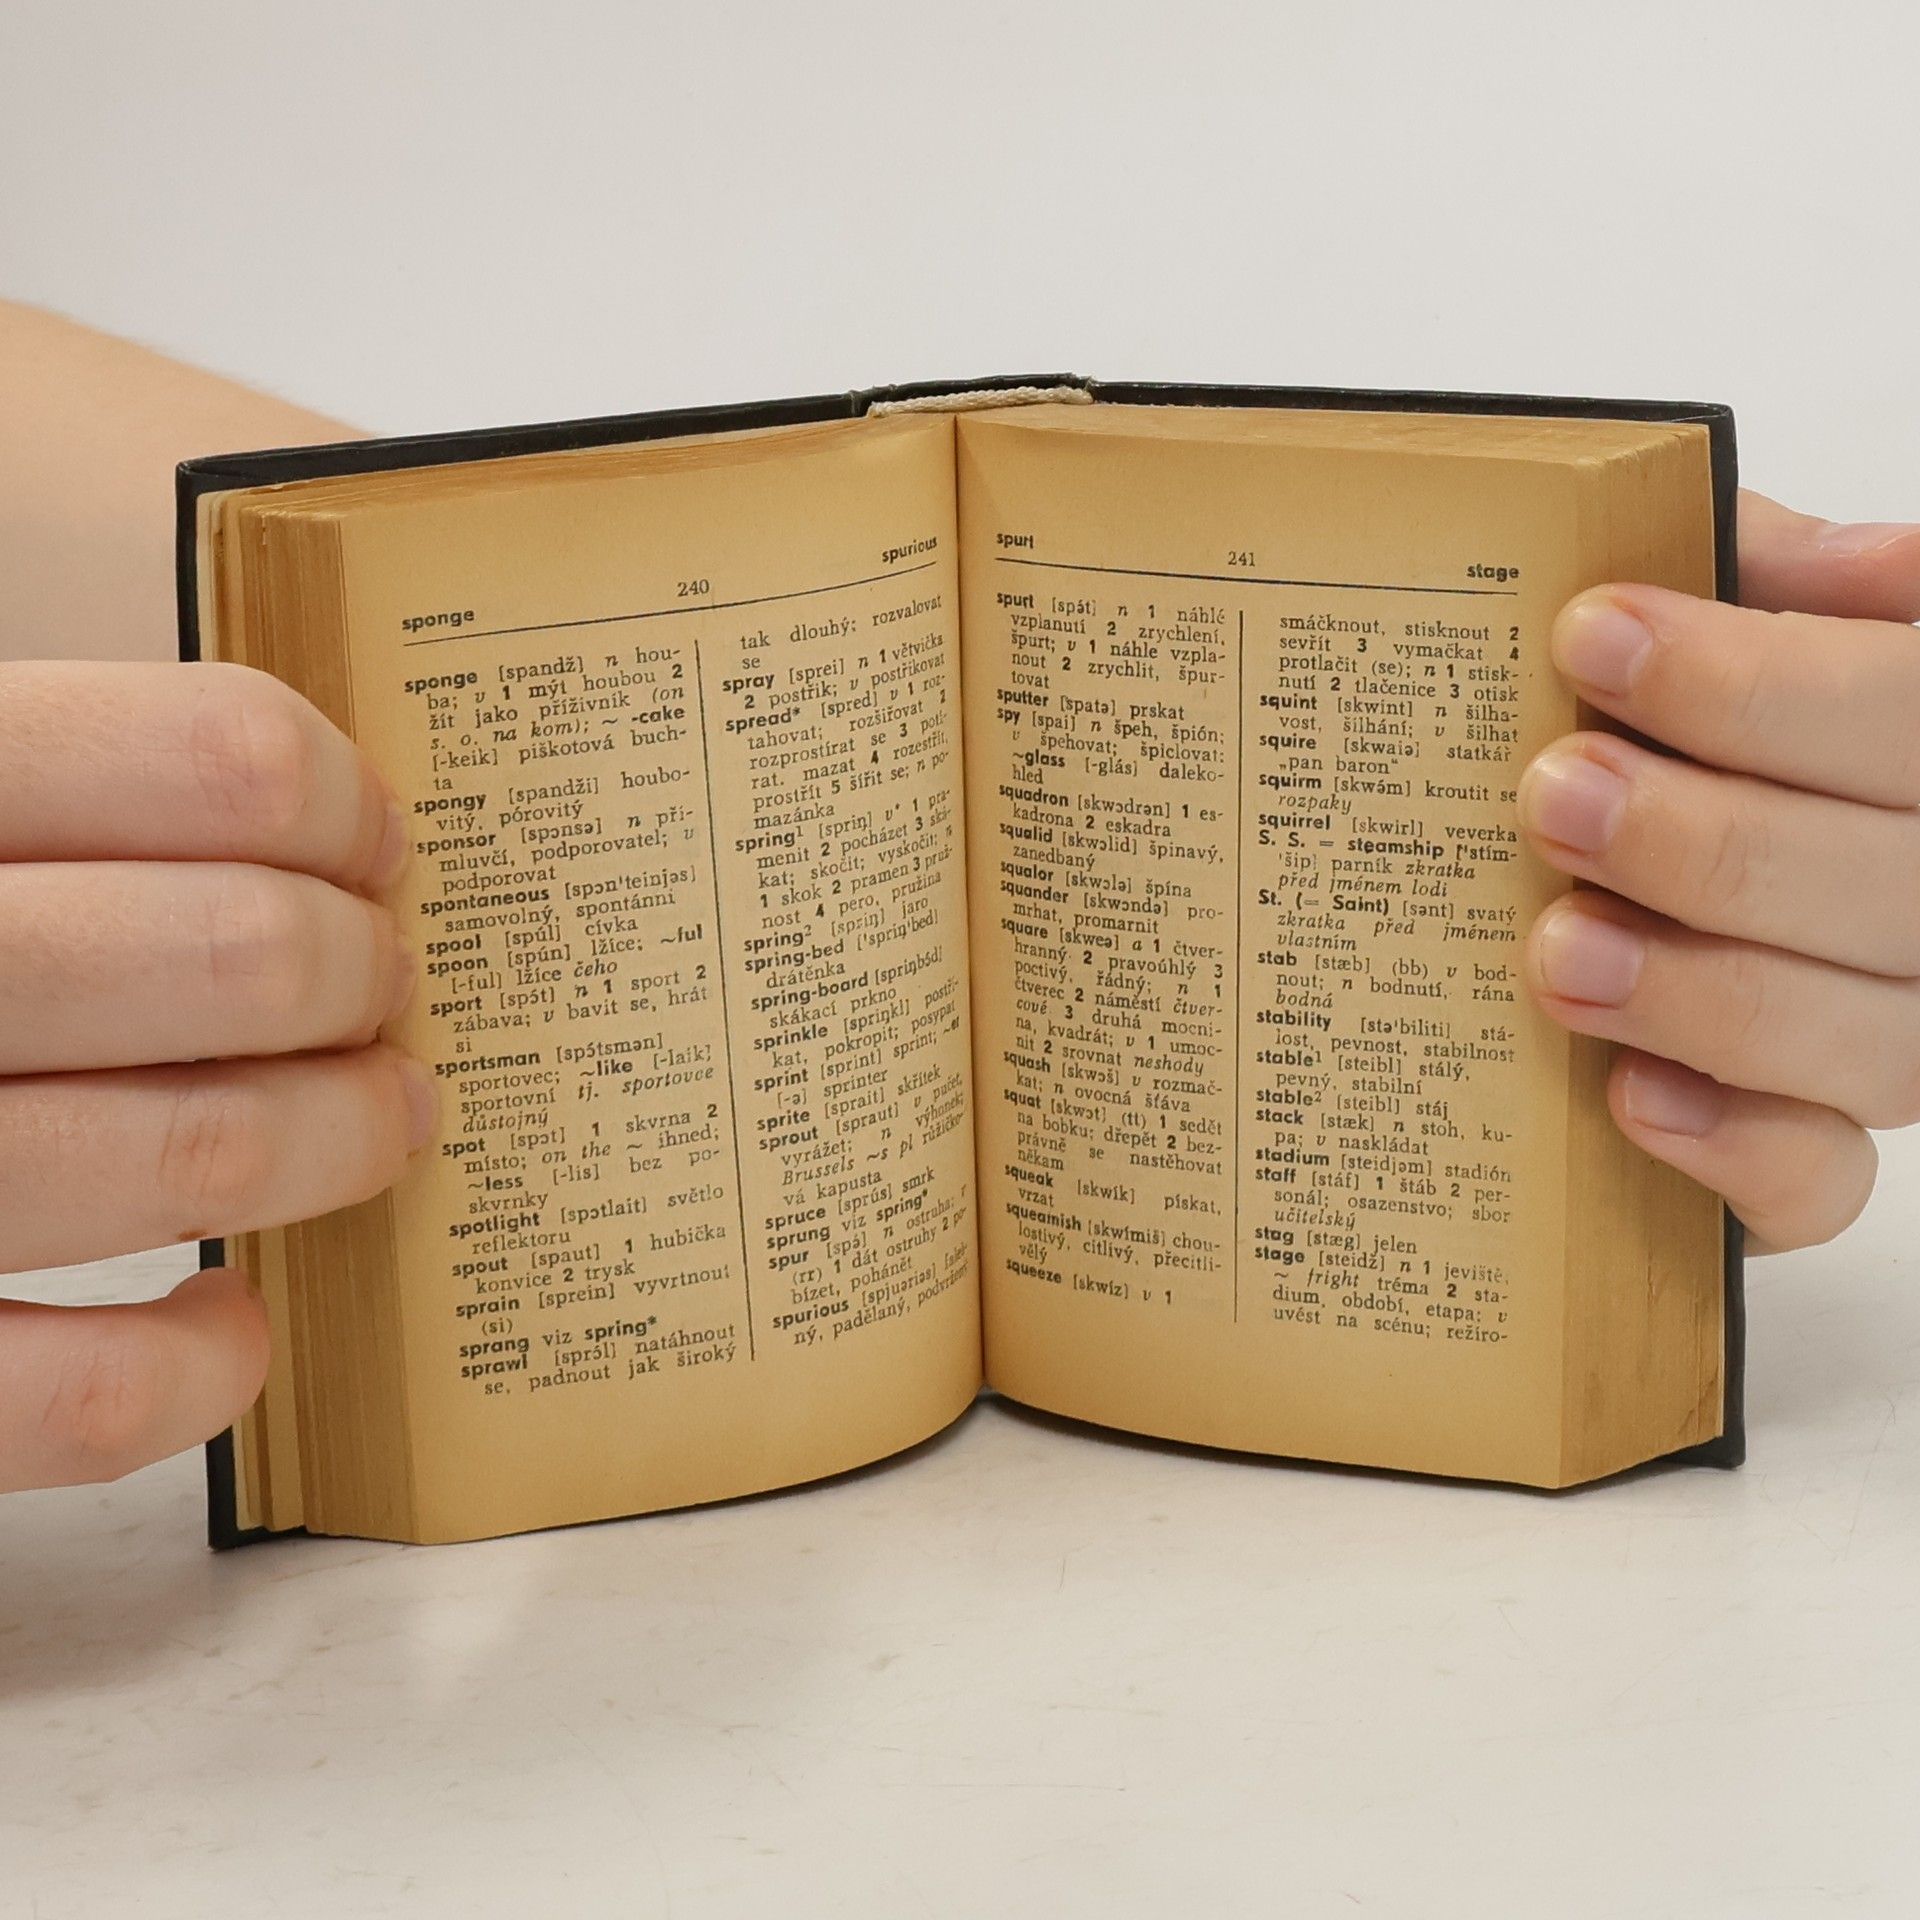 sponge 240 spurious
sponge [spandž] n hou-
ba; v 1 mýt houbou 2
žít jako příživník (on
s. o. na kom); ~ -cake
[-keik] piškotová buch-
ta
spongy [spandži] houbo-
vitý, pórovitý
sponsor [spɔnsə] n pří-
mluvčí, podporovatel; v
podporovat
spontaneous [spɔn'teinjəs]
samovolný, spontánní
spool [spúl] cívka
spoon [spún] lžíce; ~ful
[-ful] lžíce čeho
sport [spɔ́t] n 1 sport 2
zábava; v bavit se, hrát
si
sportsman [spɔ́tsmən]
sportovec; ~like [-laik]
sportovní tj. sportovce
důstojný
spot [spɔt] 1 skvrna 2
místo; on the ~ ihned;
~less [-lis] bez po-
skvrnky
spotlight [spɔtlait] světlo
reflektoru
spout [spaut] 1 hubička
konvice 2 trysk
sprain [sprein] vyvrtnout
(si)
sprang viz spring*
sprawl [sprɔ́l] natáhnout
se, padnout jak široký
tak dlouhý; rozvalovat
se
spray [sprei] n 1 větvička
2 postřik; v postřikovat
spread* [spred] v 1 roz-
tahovat; rozšiřovat 2
rozprostírat se 3 potí-
rat, mazat 4 rozestřít,
prostřít 5 šířit se; n po-
mazánka
spring¹ [spriŋ] v* 1 pra-
menit 2 pocházet 3 ská-
kat; skočit; vyskočit; n
1 skok 2 pramen 3 pruž-
nost 4 pero, pružina
spring² [spriŋ] jaro
spring-bed ['spriŋ'bed]
drátěnka
spring-board [spriŋbɔ́d]
skákací prkno
sprinkle [spriŋkl] postří-
kat, pokropit; posypat
sprint [sprint] sprint; ~er
[-ə] sprinter
sprite [sprait] skřítek
sprout [spraut] v pučet,
vyrážet; n výhonek;
Brussels ~s pl růžičko-
vá kapusta
spruce [sprús] smrk
sprung viz spring*
spur [spə́] n ostruha; v
(rr) 1 dát ostruhy 2 po-
bízet, pohánět
spurious [spjuəriəs]
ný, padělaný, podvržený
spurt 241 stage
spurt [spə́t] n 1 náhlé
vzplanutí 2 zrychlení,
špurt; v 1 náhle vzpla-
nout 2 zrychlit, špur-
tovat
sputter [spatə] prskat
spy [spai] n špeh, špión;
v špehovat; špiclovat;
~glass [-glás] daleko-
hled
squadron [skwɔdrən] 1 es-
kadrona 2 eskadra
squalid [skwɔlid] špinavý,
zanedbaný
squalor [skwɔlə] špína
squander [skwɔndə] pro-
mrhat, promarnit
square [skweə] a 1 čtver-
hranný 2 pravoúhlý 3
poctivý, řádný; n 1
čtverec 2 náměstí čtver-
cové 3 druhá mocni-
na, kvadrát; v 1 umoc-
nit 2 srovnat neshody
squash [skwɔš] v rozmač-
kat; n ovocná šťáva
squat [skwɔt] (tt) 1 sedět
na bobku; dřepět 2 bez-
právně se nastěhovat
někam
squeak [skwík] pískat,
vrzat
squeamish [skwímiš] chou-
lostivý, citlivý, přecitli-
vělý
squeeze [skwíz] v 1
smáčknout, stisknout 2
sevřít 3 vymačkat 4
protlačit (se); n 1 stisk-
nutí 2 tlačenice 3 otisk
squint [skwint] n šilha-
vost, šilhání; v šilhat
squire [skwaiə] statkář
„pan baron“
squirm [skwə́m] kroutit se
rozpaky
squirrel [skwirl] veverka
S. S. = steamship ['stím-
'šip] parník zkratka
před jménem lodi
St. (= Saint) [sənt] svatý
zkratka před jménem
vlastním
stab [stæb] (bb) v bod-
nout; n bodnutí, rána
bodná
stability [stə'biliti] stá-
lost, pevnost, stabilnost
stable¹ [steibl] stálý,
pevný, stabilní
stable² [steibl] stáj
stack [stæk] n stoh, ku-
pa; v naskládat
stadium [steidjəm] stadión
staff [stáf] 1 štáb 2 per-
sonál; osazenstvo; sbor
učitelský
stag [stæg] jelen
stage [steidž] n 1 jeviště;
~ fright tréma 2 sta-
dium, období, etapa; v
uvést na scénu; režíro-